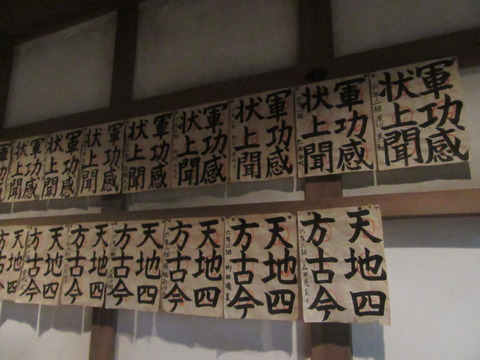 軍功感
状上聞
軍功感
状上聞
軍功感
状上聞
軍功感
状上聞
軍功感
状上聞
軍功感
状上聞
軍功感
状上聞
軍功感
状上聞
軍功感
天地四
方古今
天地四
方古今
天地四
方古今
天地四
方古今
天地四
方古今
天地四
方古今
天地四